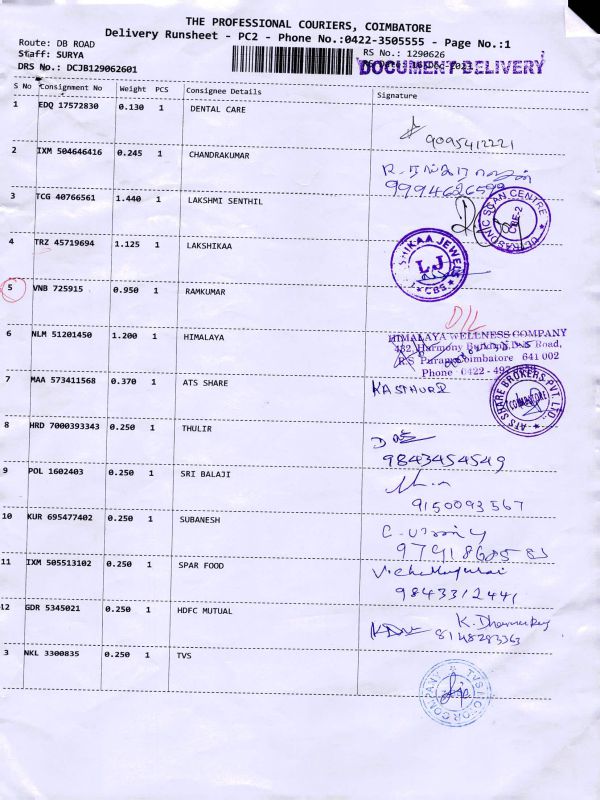 THE PROFESSIONAL COURIERS, COIMBATORE
Delivery Runsheet - PC2 - Phone No.:0422-3505555 - Page No.:1
Route: DB ROAD
Staff: SURYA
RS No.: 1290626
DRS No.: DCJB129062601
DOCUMENT DELIVERY
S No Consignment No Weight PCS Consignee Details Signature
1 EDQ 17572830 0.130 1 DENTAL CARE
9095412221
2 IXM 504646416 0.245 1 CHANDRAKUMAR
9994626599
3 TCG 40766561 1.440 1 LAKSHMI SENTHIL
ULTRASONIC SCAN CENTRE
CBE-2
4 TRZ 45719694 1.125 1 LAKSHIKAA
JEWELS
LJ
CBS
5 VNB 725915 0.950 1 RAMKUMAR
D/L
6 NLM 51201450 1.200 1 HIMALAYA
HIMALAYA WELLNESS COMPANY
482, Harmony Road,
R S Puram, Coimbatore 641 002
Phone 0422 - 
7 MAA 573411568 0.370 1 ATS SHARE
KASTHURI
ATS SHARE BROKERS PVT. LTD
COIMBATORE
8 HRD 7000393343 0.250 1 THULIR
9843454549
9 POL 1602403 0.250 1 SRI BALAJI
9150093567
10 KUR 695477402 0.250 1 SUBANESH
11 IXM 505513102 0.250 1 SPAR FOOD
9843312441
12 GDR 5345021 0.250 1 HDFC MUTUAL
8148283363
3 NKL 3300835 0.250 1 TVS
TVS MOTOR COMPANY